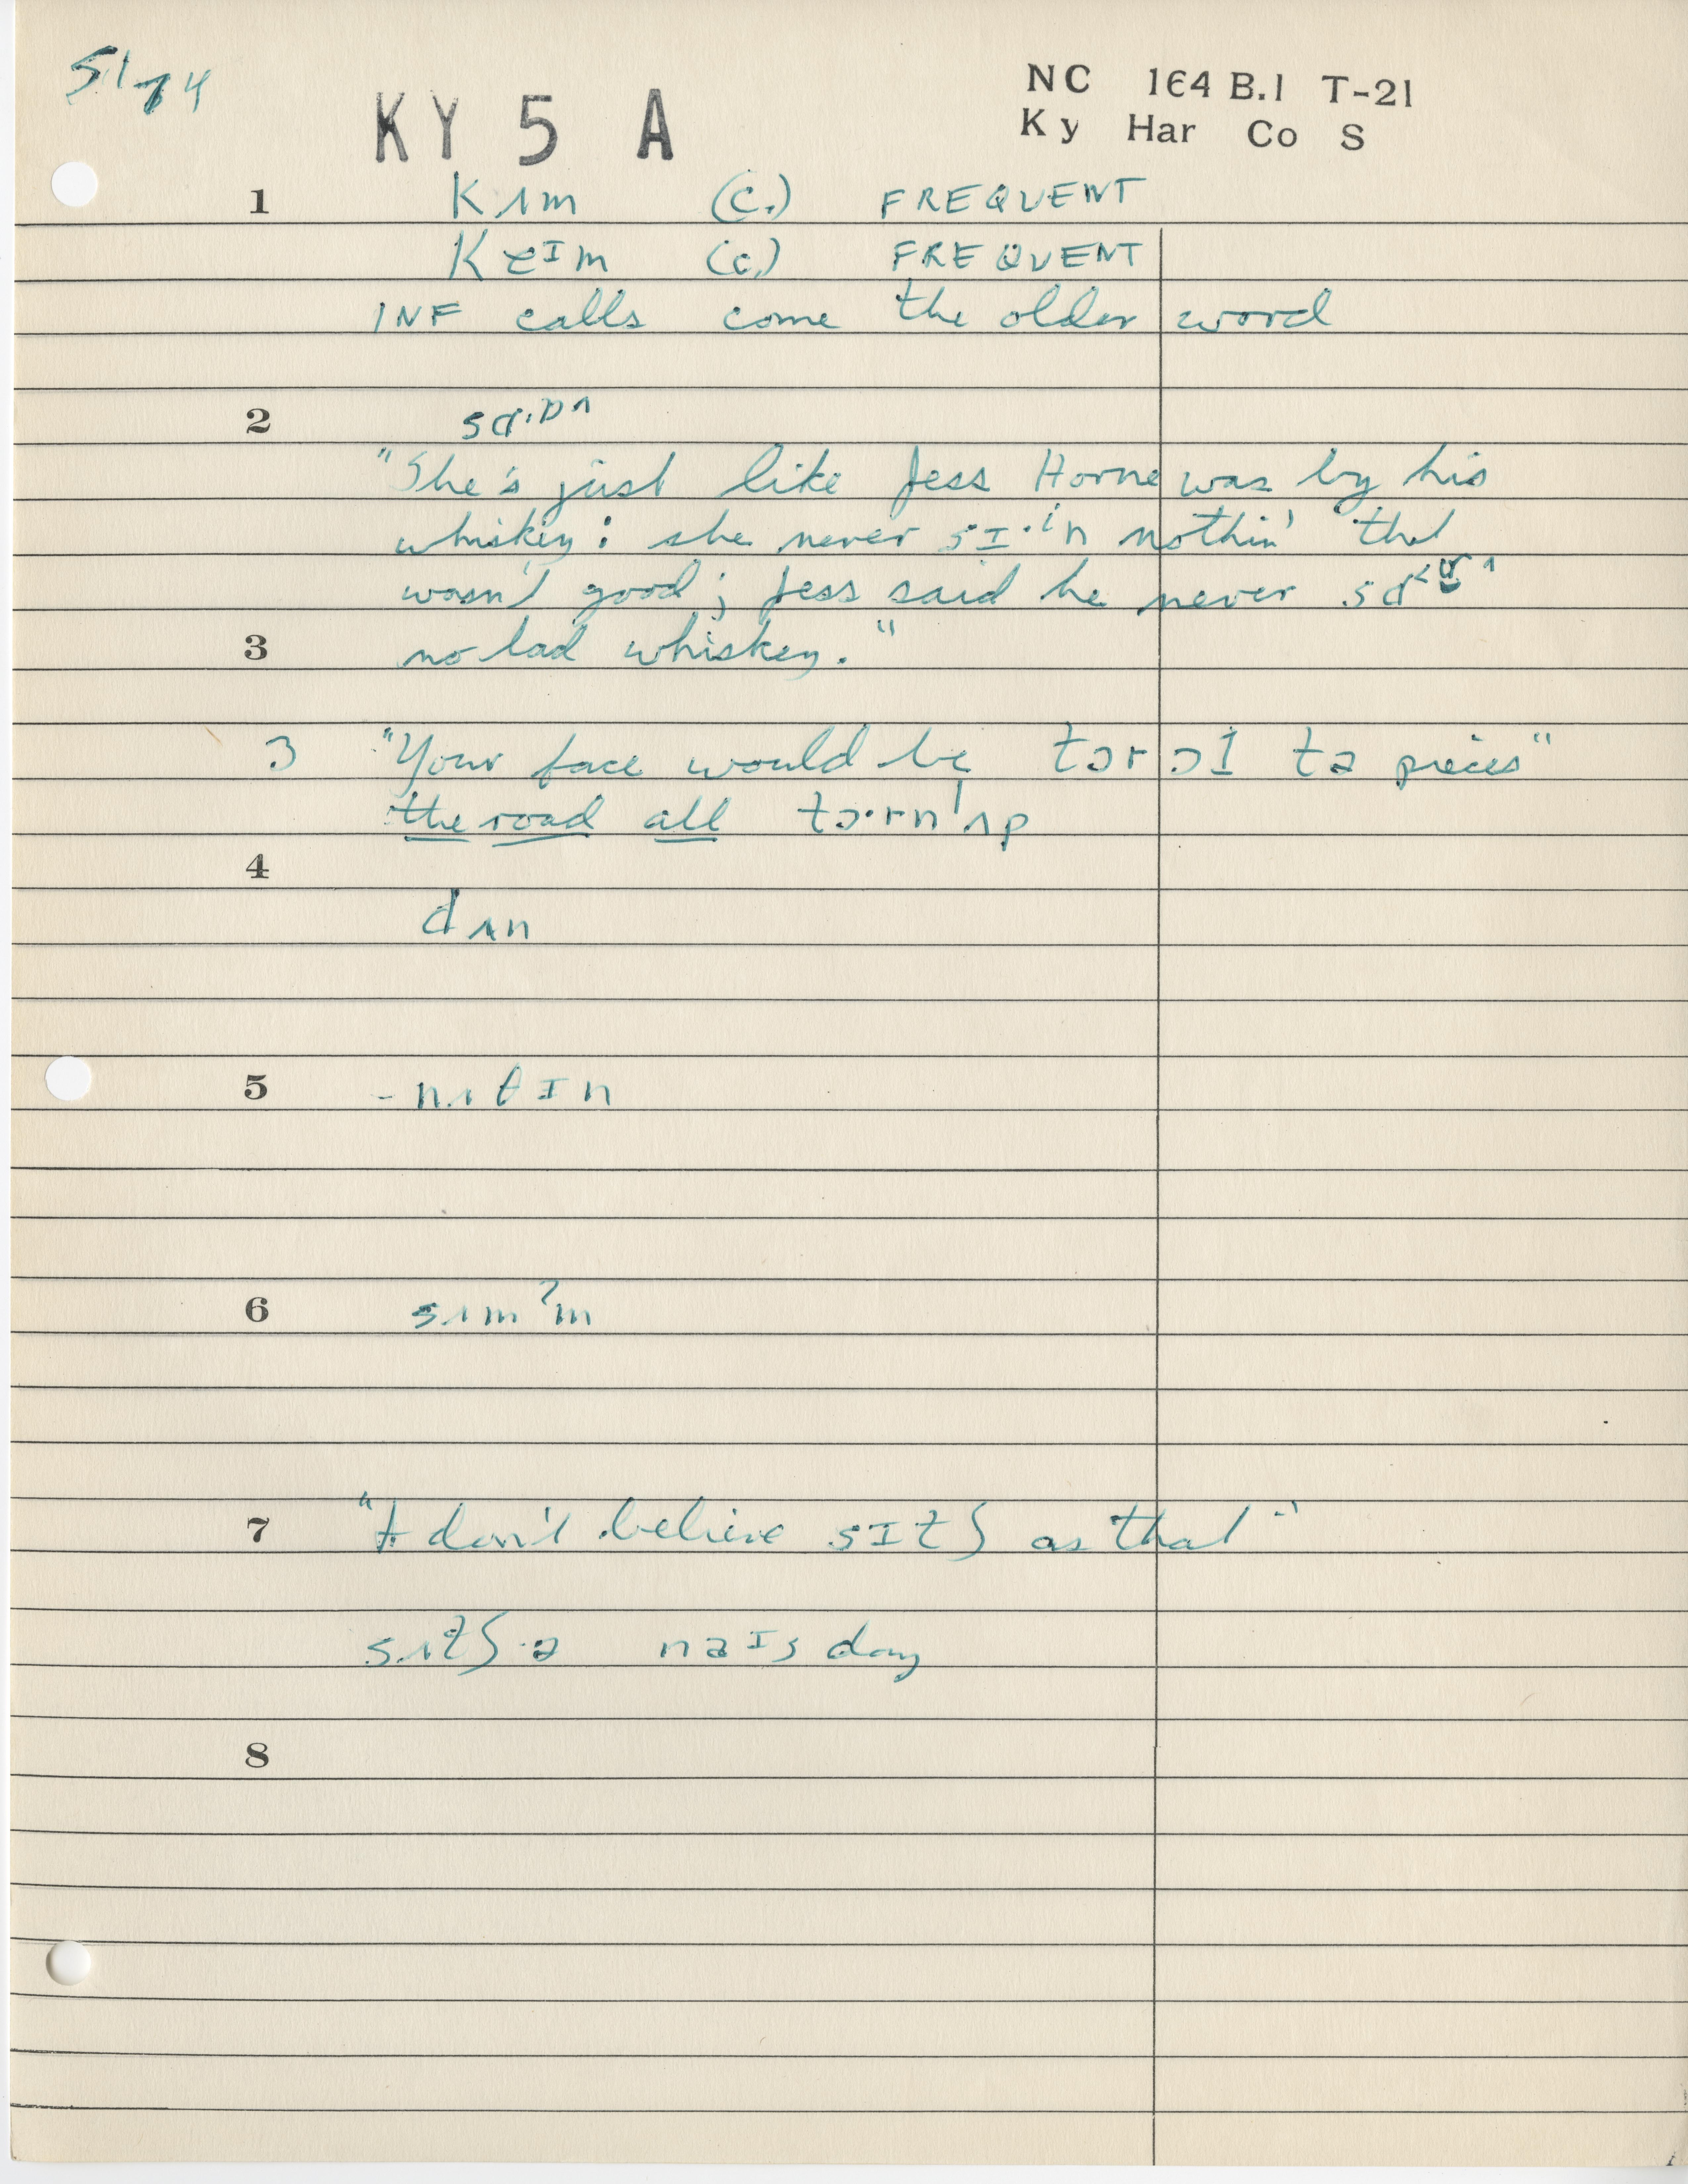 51 14
KY 5 A
NC 164 B.1 T-21
Ky Har Co S
1 kʌm (c.) FREQUENT
keɪm (c.) FREQUENT
INF calls come the older word
2 sɑ·ɒ^
"She's just like Jess Horne was by his
whiskey: she never sɪ·in nothin' that
wasn't good; Jess said he never sɑ
3 no bad whiskey."
3 "Your face would be tɔr ɔl tə pieces"
the road all tɔ·rn'ʌp
4
dʌn
5 -nʌtɪn
6 sʌmʔm
7 "I don't believe sɪtʃ as that"
sʌtʃ ə naɪs day
8